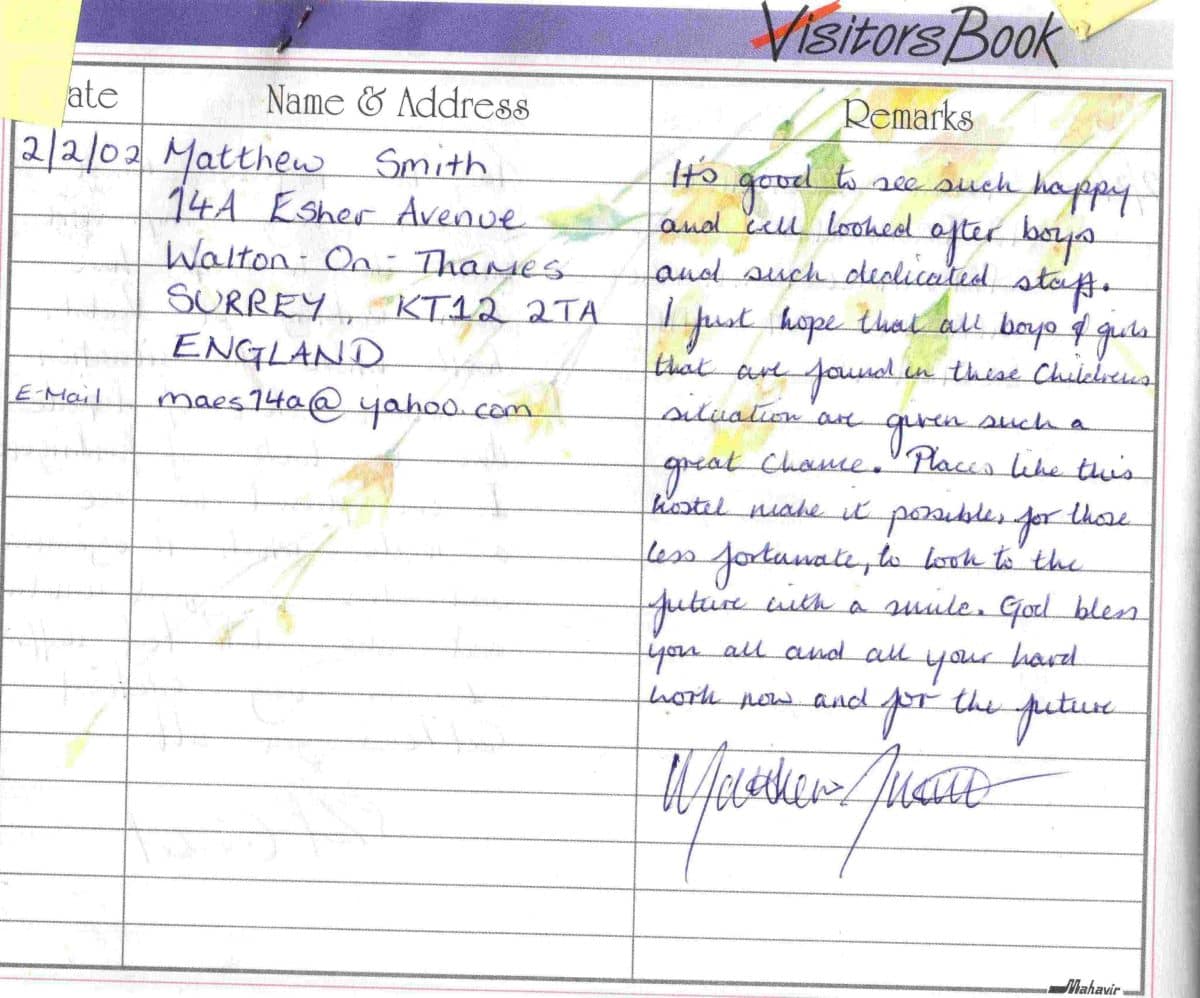 Visitors Book
ate
Name & Address
Remarks
2/2/02
Matthew Smith
14A Esher Avenue
Walton-On-Thames
SURREY, KT12 2TA
ENGLAND
E-Mail
maes14a@yahoo.com
It's good to see such happy
and well looked after boys
and such dedicated staff.
I just hope that all boys & girls
that are found in these Childrens
situation are given such a
great chance. Places like this
hostel make it possible, for those
less fortunate, to look to the
future with a smile. God bless
you all and all your hard
work now and for the future
Matthew Smith
Mahavir